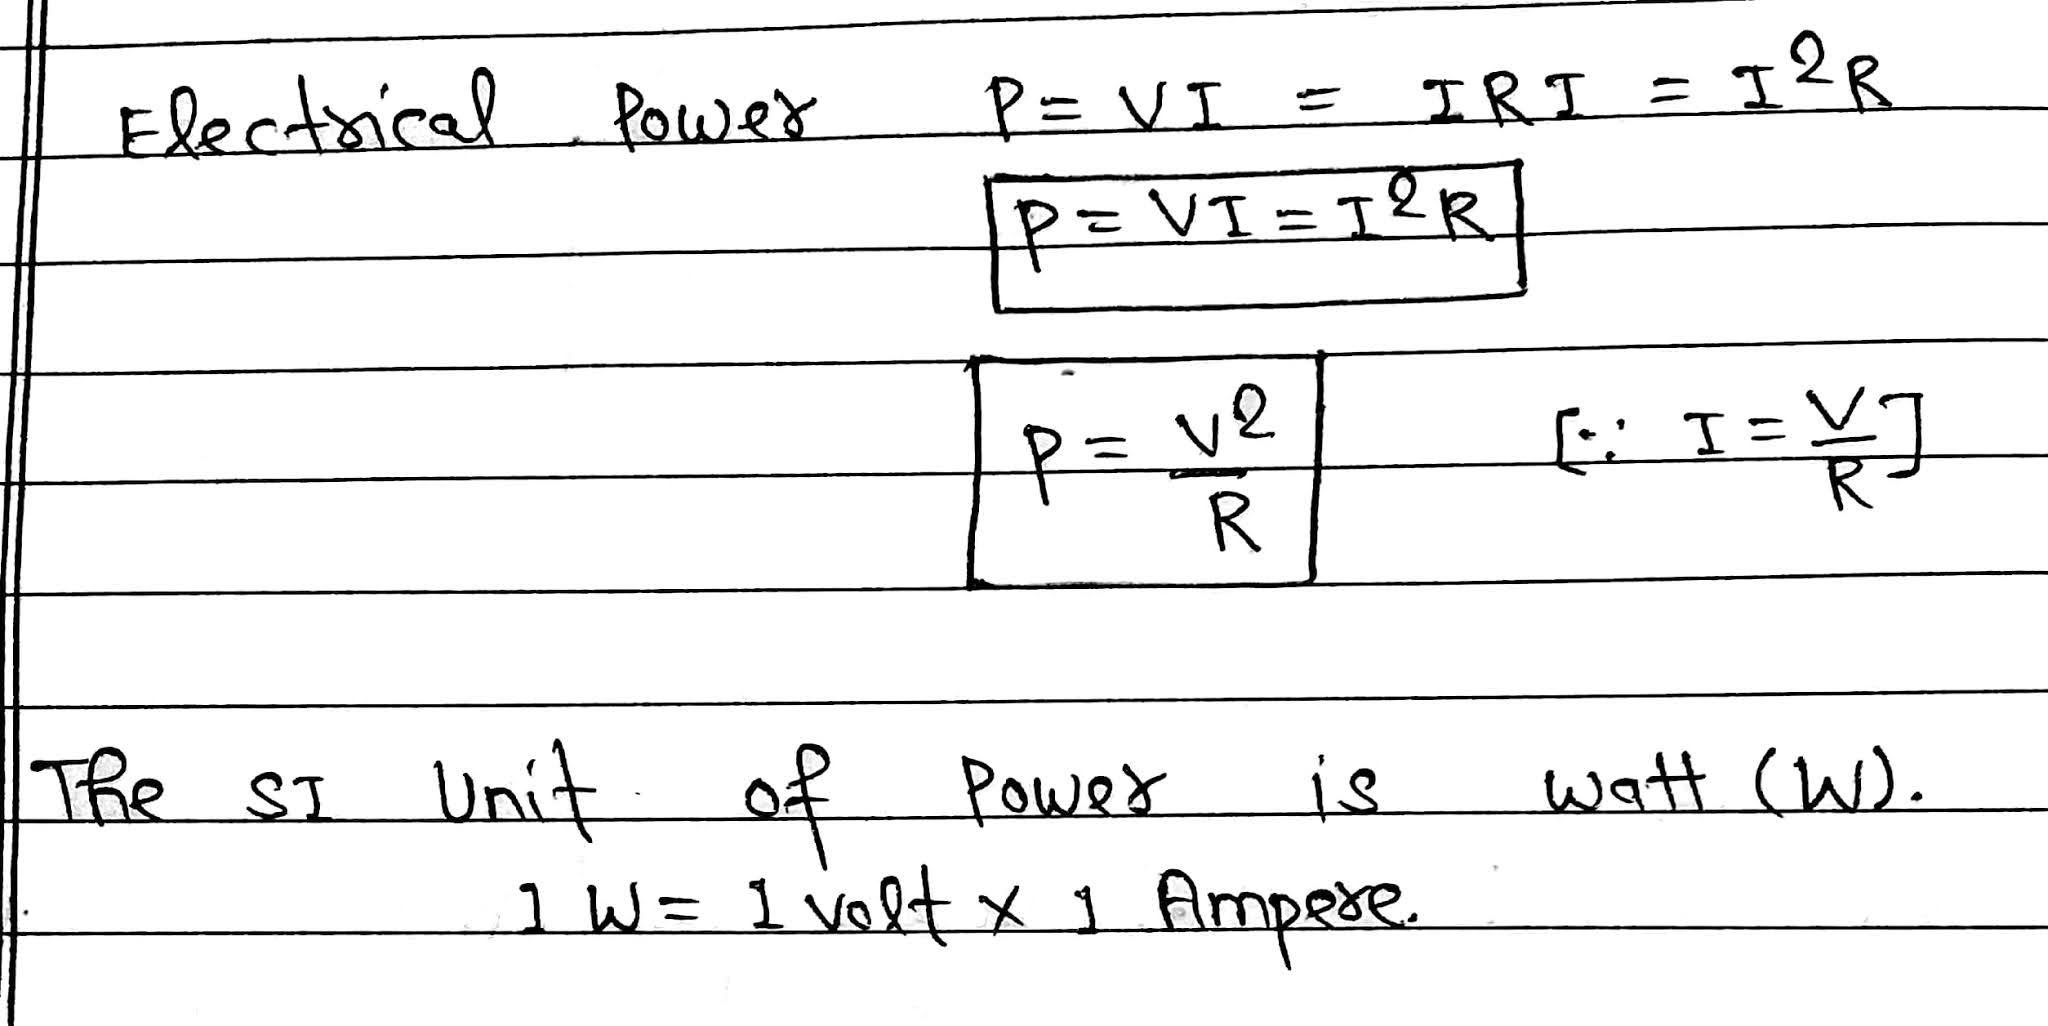 Electrical Power P = VI = IRI = I²R
P = VI = I²R
P = V²/R [∵ I = V/R]
The SI Unit of Power is watt (W).
1 W = 1 volt x 1 Ampere.